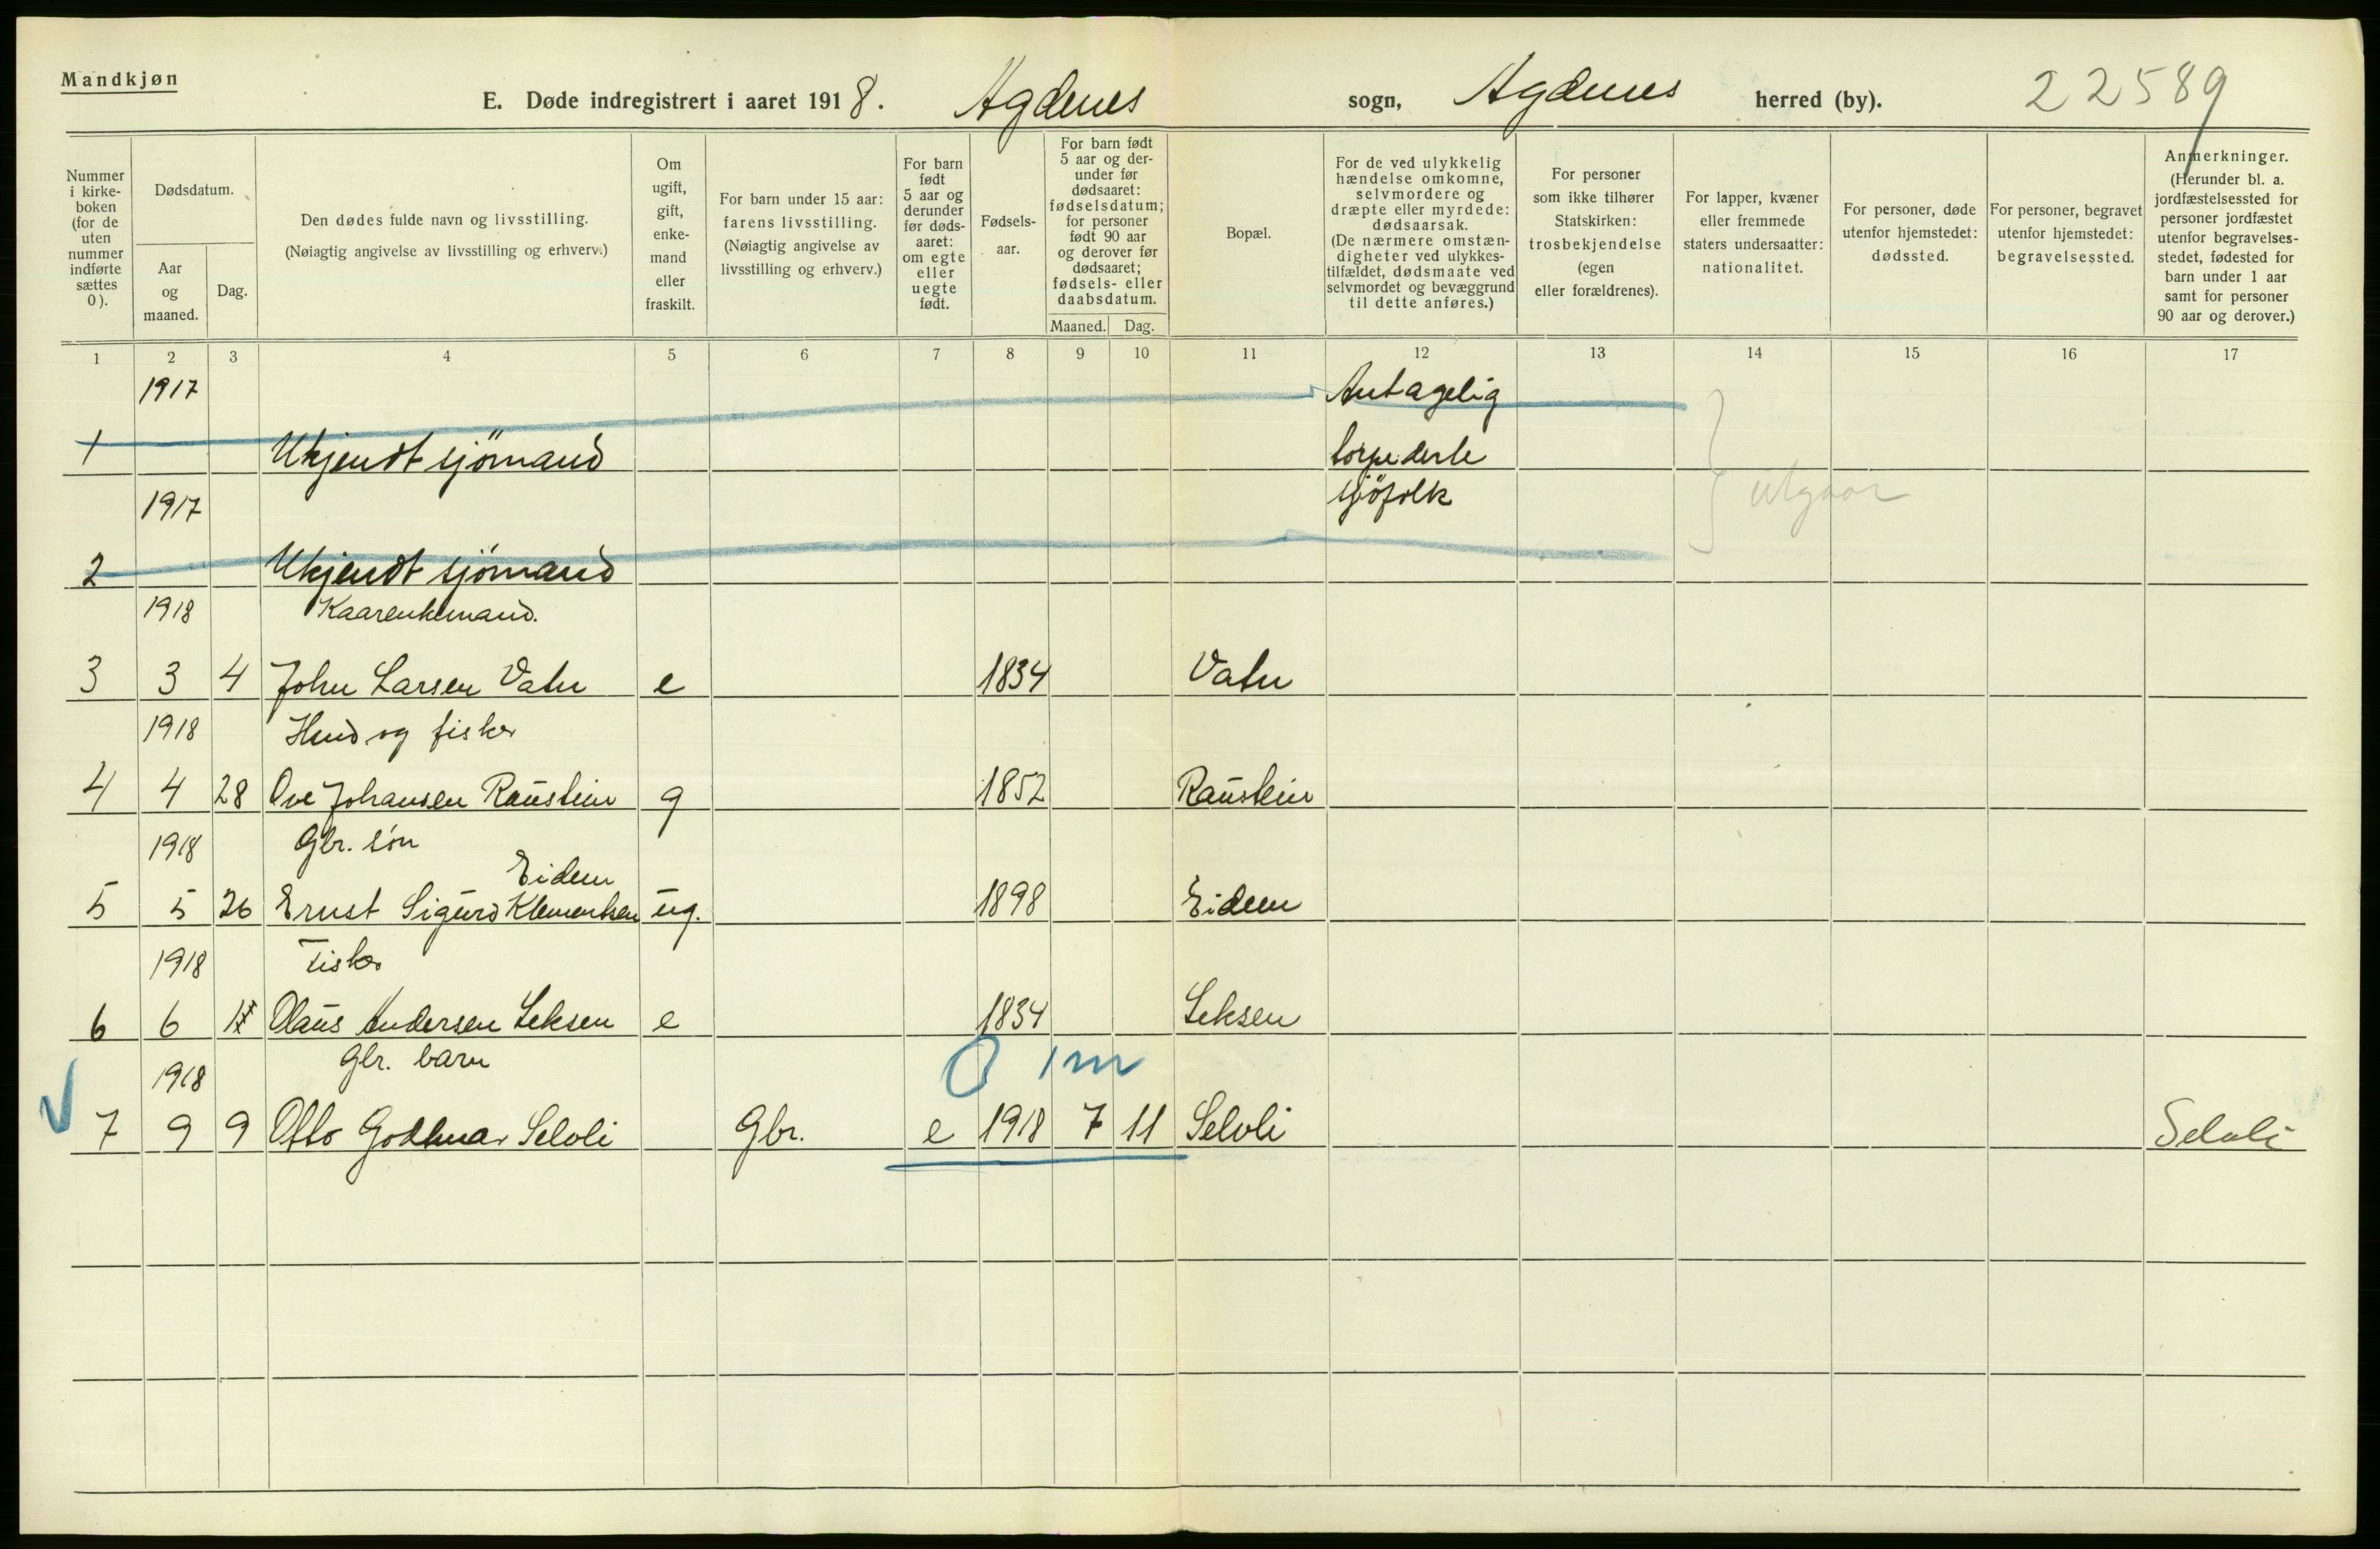 Mandkjøn
E. Døde indregistrert i aaret 1918. Agdenes sogn, Agdenes herred (by). 22589
Nummer i kirkeboken (for de uten nummer indførte sættes 0).
Dødsdatum.
Aar og maaned.
Dag.
Den dødes fulde navn og livsstilling.
(Nøiagtig angivelse av livsstilling og erhverv.)
Om ugift, gift, enkemand eller fraskilt.
For barn under 15 aar: farens livsstilling. (Nøiagtig angivelse av livsstilling og erhverv.)
For barn født 5 aar og derunder før dødsaaret: om egte eller uegte født.
Fødselsaar.
For barn født 5 aar og derunder før dødsaaret: fødselsdatum; for personer født 90 aar og derover før dødsaaret; fødsels- eller daabsdatum.
Maaned. Dag.
Bopæl.
For de ved ulykkelig hændelse omkomne, selvmordere og dræpte eller myrdede: dødsaarsak. (De nærmere omstændigheter ved ulykkestilfældet, dødsmaate ved selvmordet og bevæggrund til dette anføres.)
For personer som ikke tilhører Statskirken: trosbekjendelse (egen eller forældrenes).
For lapper, kvæner eller fremmede staters undersaatter: nationalitet.
For personer, døde utenfor hjemstedet: dødssted.
For personer, begravet utenfor hjemstedet: begravelsessted.
Anmerkninger. (Herunder bl. a. jordfæstelsessted for personer jordfæstet utenfor begravelsesstedet, fødested for barn under 1 aar samt for personer 90 aar og derover.)
1 2 3 4 5 6 7 8 9 10 11 12 13 14 15 16 17
1917 Antagelig
1 Ukjendt sjömand torpederte
1917 sjöfolk utgaar
2 Ukjendt sjömand
1918
3 3 4 John Larsen Vatn e 1834 Vatn
1918 Husd og fisker
4 4 28 Ove Johansen Raustein g 1852 Raustein
1918 Gbr. søn
Eidem
5 5 26 Ernst Sigurd Klementsen ug. 1898 Eidem
1918 Fisker
6 6 Olaus Andersen Leksen e 1834 Leksen
1918 Gbr. barn 0 1 m
7 9 9 Otto Godtmar Selvli Gbr. e 1918 7 11 Selvli Selvli